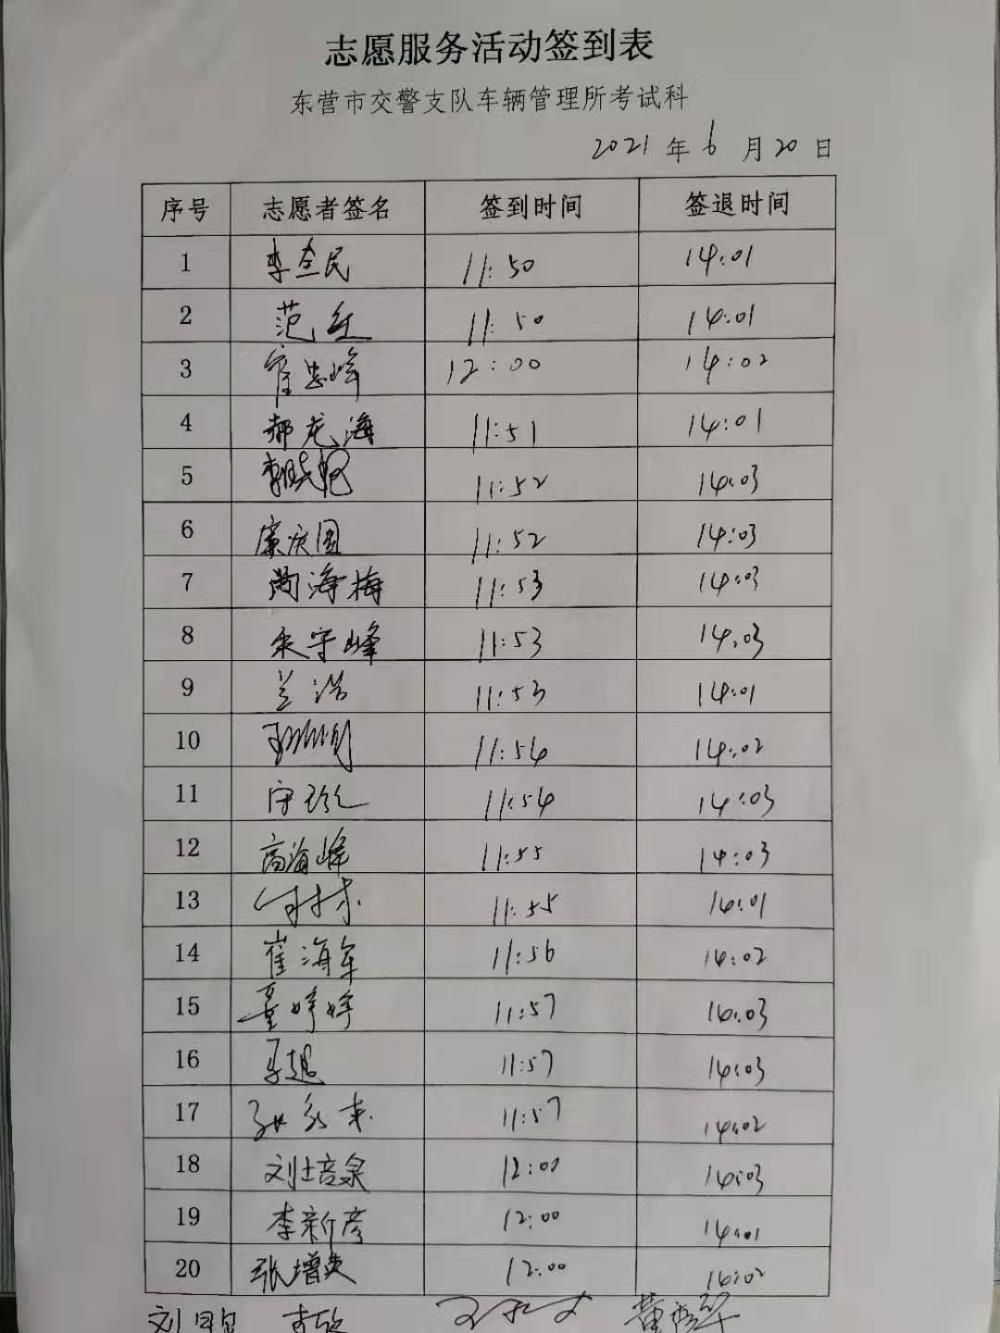 志愿服务活动签到表
东营市交警支队车辆管理所考试科
2021 年 6 月 20 日
序号 志愿者签名 签到时间 签退时间
1 李全民 11:50 14:01
2 范 11:50 14:01
3 霍忠峰 12:00 14:02
4 郝龙海 11:51 14:01
5 11:52 14:03
6 廉庆国 11:52 14:03
7 尚海梅 11:53 14:03
8 朱宇峰 11:53 14:03
9 兰浩 11:53 14:01
10 11:54 14:02
11 11:54 14:03
12 高海峰 11:55 14:03
13 11:55 14:01
14 崔海军 11:56 14:02
15 董婷婷 11:57 14:03
16 马超 11:57 14:03
17 11:57 14:02
18 刘培泉 12:00 14:03
19 李新彦 12:00 14:01
20 张增 12:00 14:02
刘 李 黄